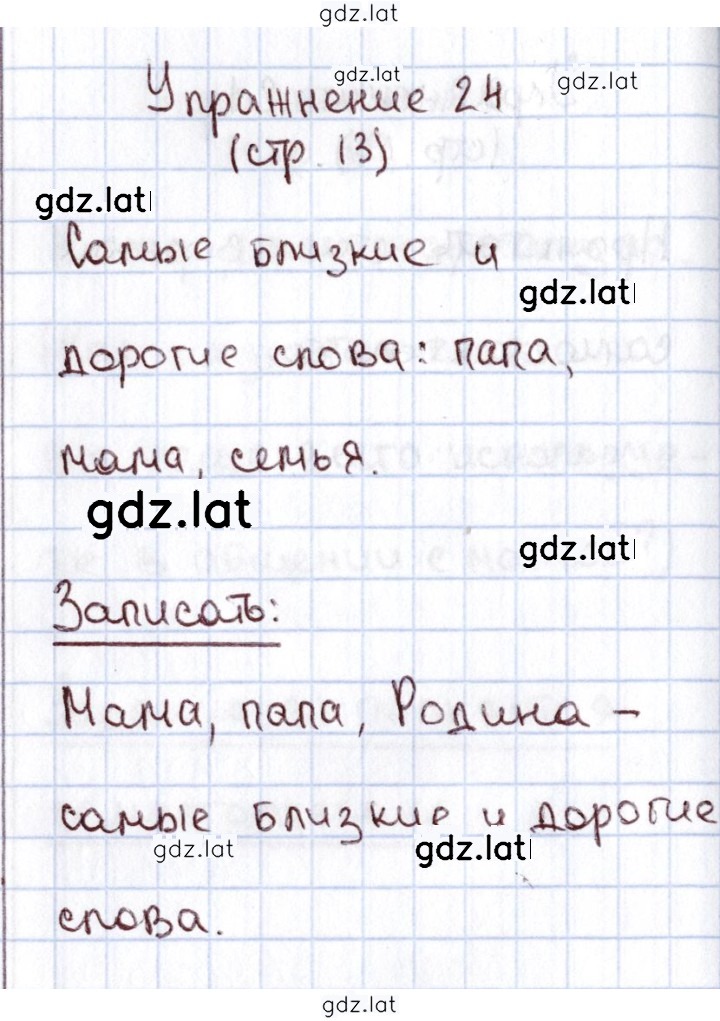 gdz.lat
gdz.lat
gdz.lat
Упражнение 24
(стр. 13)
gdz.lat
Самые близкие и
gdz.lat
дорогие слова: папа,
мама, семья.
gdz.lat
gdz.lat
Записать:
Мама, папа, Родина –
самые близкие и дорогие
gdz.lat
gdz.lat
слова.
gdz.lat